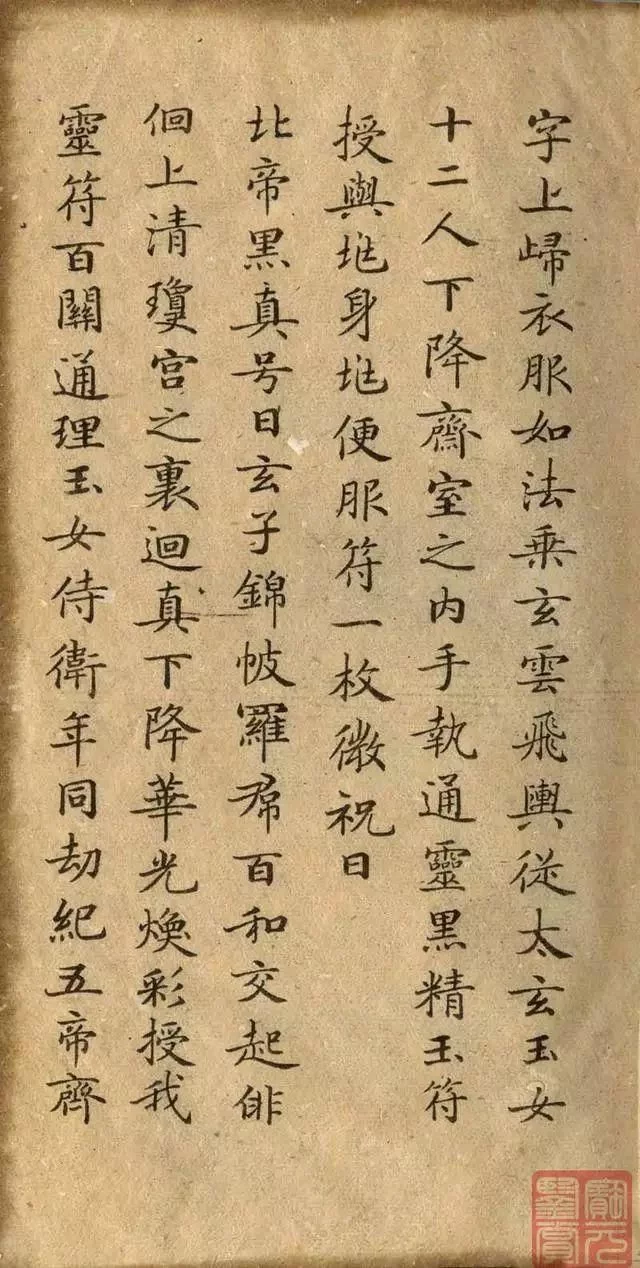 字上歸衣服如法乗玄雲飛輿従太玄玉女
十二人下降齋室之内手執通靈黒精玉符
授與兆身兆便服符一枚微祝曰
北帝黒真号曰玄子錦帔羅帬百和交起俳
佪上清瓊宫之裏迴真下降華光煥彩授我
靈符百關通理玉女侍衛年同劫紀五帝齊